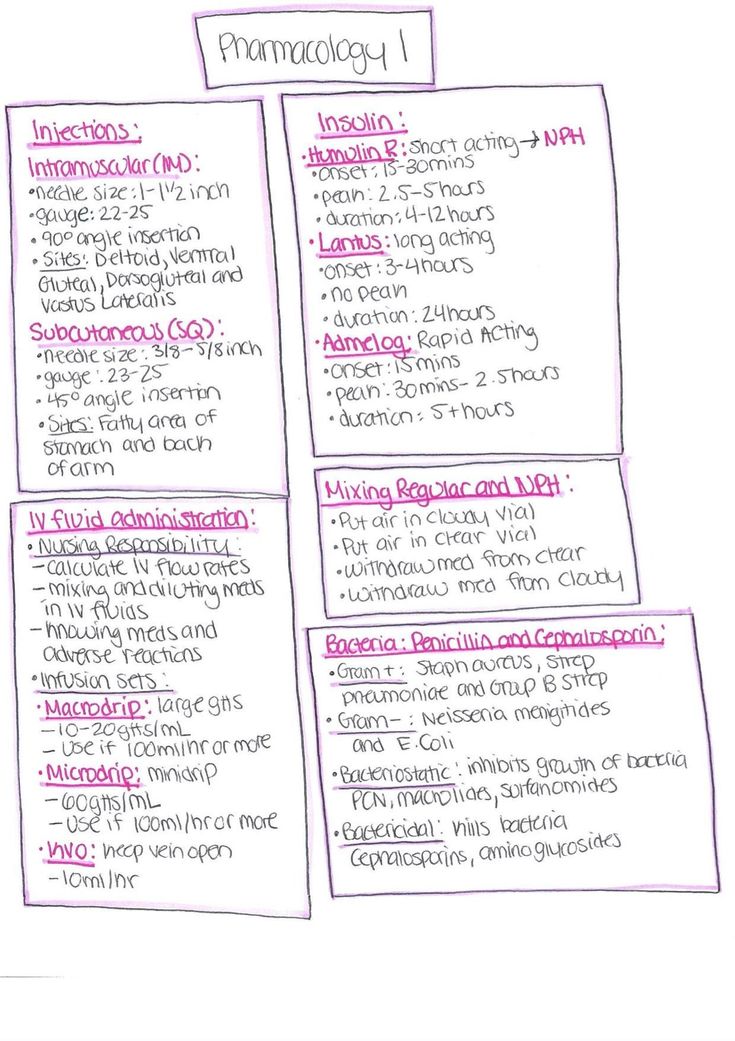 Pharmacology 1
Injections:
Intramuscular (IM):
•needle size: 1-1 1/2 inch
•gauge: 22-25
•90° angle insertion
•Sites: Deltoid, Ventral
Gluteal, Dorsogluteal and
Vastus Lateralis
Subcutaneous (SQ):
•needle size: 3/8-5/8 inch
•gauge: 23-25
•45° angle insertion
•Sites: Fatty area of
stomach and back
of arm
Insulin:
•Humulin R: Short acting → NPH
•onset: 15-30mins
•peak: 2.5-5 hours
•duration: 4-12 hours
•Lantus: long acting
•onset: 3-4 hours
•no peak
•duration: 24 hours
•Admelog: Rapid Acting
•onset: 15 mins
•peak: 30mins-2.5 hours
•duration: 5+ hours
IV fluid administration:
•Nursing Responsibility:
-calculate IV flow rates
-mixing and diluting meds
in IV fluids
-knowing meds and
adverse reactions
•Infusion sets:
•Macrodrip: large gtts
-10-20gtts/mL
-Use if 100ml/hr or more
•Microdrip: minidrip
-60gtts/mL
-Use if 100ml/hr or more
•KVO: keep vein open
-10ml/hr
Mixing Regular and NPH:
•Put air in cloudy vial
•Put air in clear vial
•Withdraw med from clear
•Withdraw med from cloudy
Bacteria: Penicillin and Cephalosporin:
•Gram+: Staph aureus, strep
pneumoniae and Group B Strep
•Gram-: Neisseria menigitides
and E.Coli
•Bacteriostatic: inhibits growth of bacteria
PCN, macrolides, sulfanomides
•Bactericidal: kills bacteria
Cephalosporins, aminoglycosides